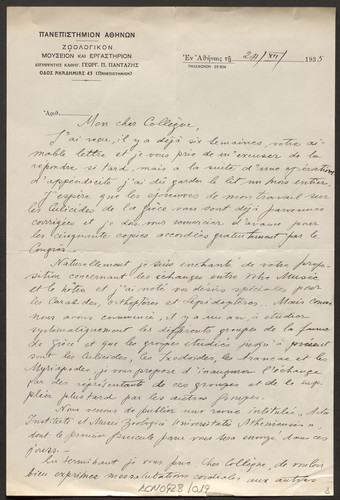 ΠΑΝΕΠΙΣΤΗΜΙΟΝ ΑΘΗΝΩΝ
ΖΩΟΛΟΓΙΚΟΝ
ΜΟΥΣΕΙΟΝ ΚΑΙ ΕΡΓΑΣΤΗΡΙΟΝ
ΔΙΕΥΘΥΝΤΗΣ ΚΑΘΗΓ. ΓΕΩΡΓ. Π. ΠΑΝΤΑΖΗΣ
ΟΔΟΣ ΑΚΑΔΗΜΙΑΣ 43 (ΠΑΝΕΠΙΣΤΗΜΙΟΝ)
Ἐν Ἀθήναις τῇ 29/XII/ 1935
Ἀριθ.
Mon cher Collègue,
J'ai reçu, il y a déjà six semaines, votre ai-
mable lettre et je vous prie de m'excuser de la
repondre si tard, mais à la suite d'une opération
d'appendicite j'ai dû garder le lit un mois entier.
J'espère que les épreuves de mon travail sur
les Culicides de la Grèce vous sont déjà parvenues
corrigées et je dois vous remercier d'avance pour
les cinquante copies accordées gratuitement par le
Congrès.
Naturellement je suis enchanté de votre propo-
sition concernant les échanges entre votre Musée
et le nôtre et j'ai noté vos désirs spéciales pour
les Carabides, Orthoptères et Lépidoptères. Mais comme
nous avons commencé, il y a un an, à étudier
systématiquement les différents groupes de la faune
de Grèce et que les groupes étudiés jusqu'à présent
sont les Culicides, les Ixodoides, les Araneae et les
Myriapodes, je vous propose d'inaugurer l'échange
par des représentants de ces groupes et de la sup-
pléer plus tard par les autres groupes.
Nous venons de publier une revue intitulée, Acta
Instituti et Musei Zoologici Universitatis Atheniensis",
dont le premier fascicule vous sera envoyé dans ces
jours.-
En terminant je vous prie, cher Collègue, de vouloir
bien exprimer mes salutations cordiales aux autres
ACN0928/019